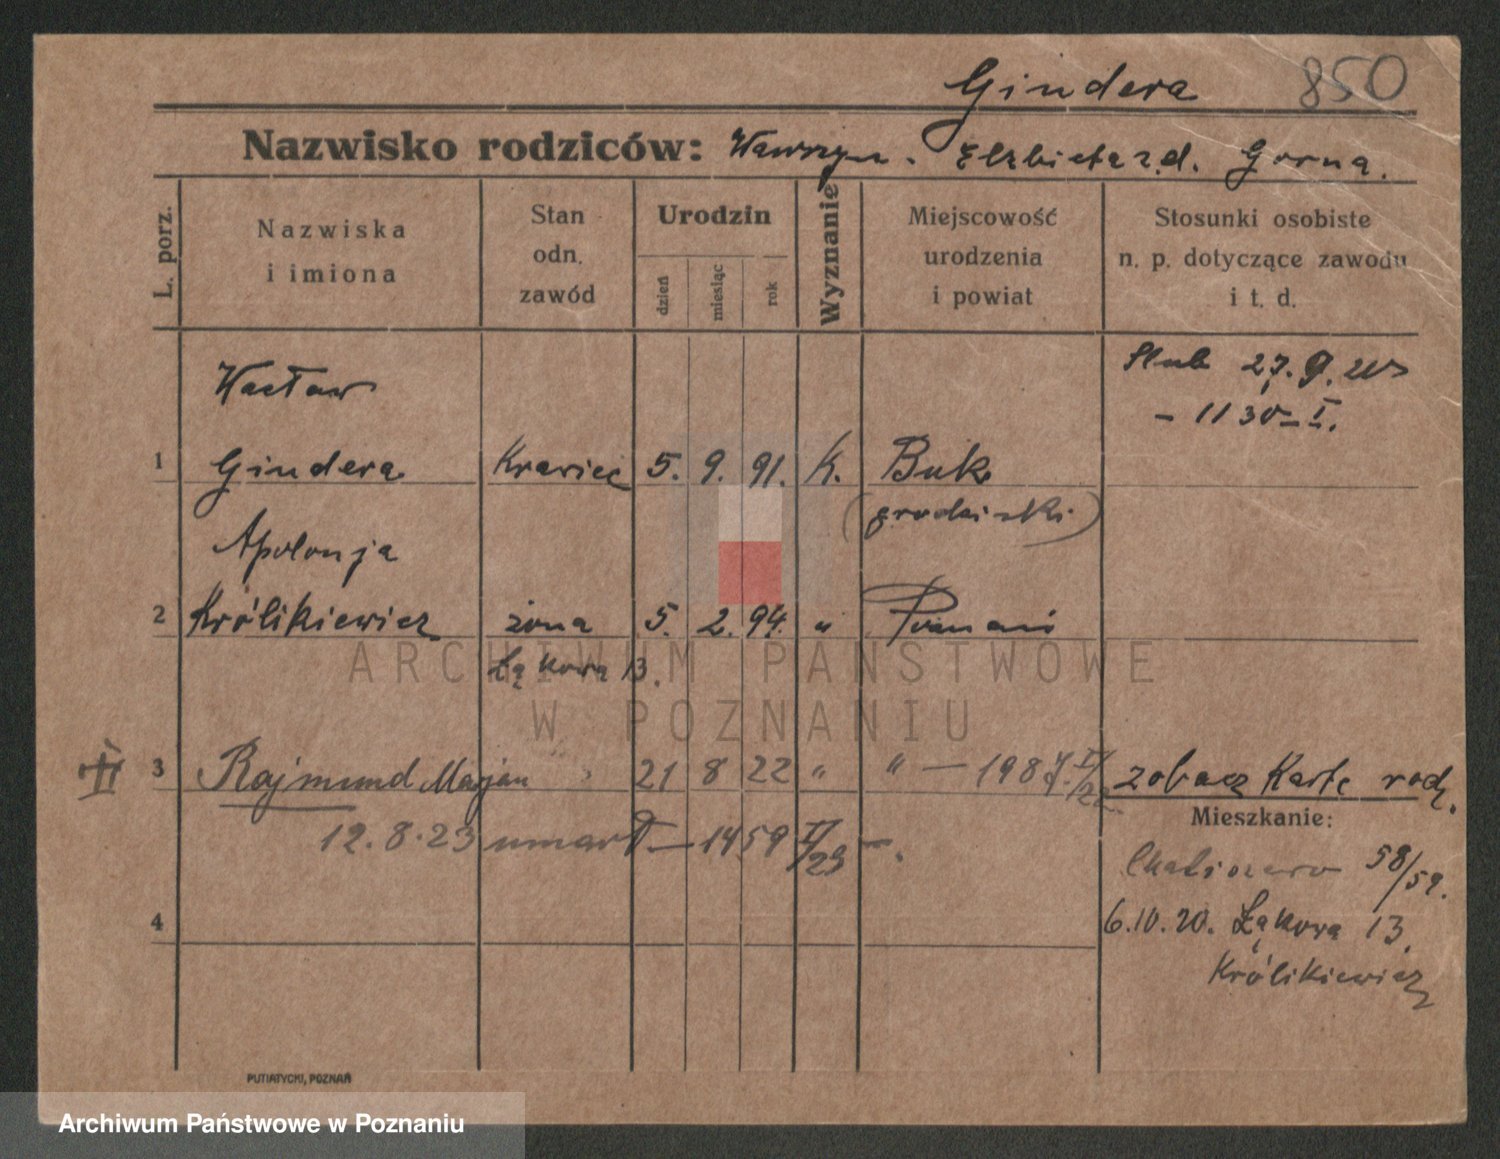 Gindera 850
Nazwisko rodziców: Wawrzyn. Elżbieta z d. Gorna.
L. porz.
Nazwiska
i imiona
Stan
odn.
zawód
Urodzin
dzień
miesiąc
rok
Wyznanie
Miejscowość
urodzenia
i powiat
Stosunki osobiste
n. p. dotyczące zawodu
i t. d.
Wacław
1 Gindera Krawiec 5. 9. 91. K. Buk
(grodziski)
Ślub 27. 9. 20
– 1130 – I.
Apolonja
2 Królikiewicz żona 5. 2. 94. „ Poznań
Łąkowa 13.
ARCHIWUM PAŃSTWOWE
W POZNANIU
3 Rajmund Marjan 21 8 22 „ „ – 1987. II/22 zobacz Kartę rodz.
12.8.23 umarł – 1459 II/23 –.
Mieszkanie:
58/59.
6.10.20. Łąkowa 13.
Królikiewicz
4
PUTIATYCKI, POZNAŃ
Archiwum Państwowe w Poznaniu